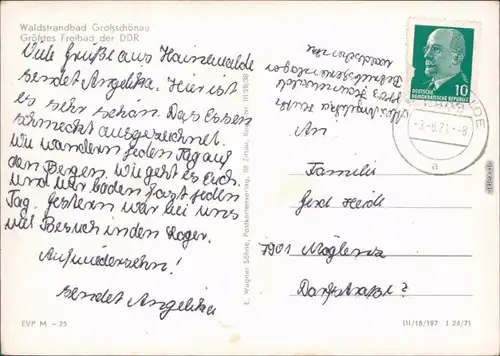 Waldstrandbad Großschönau
Größtes Freibad der DDR
Viele Grüße aus Hainewalde
sendet Angelika. Hier ist
es sehr schön. Das Essen
schmeckt ausgezeichnet.
Wir wandern jeden Tag auf
den Bergen. Wie geht es Euch
und wir baden fast jeden
Tag. Gestern war bei uns
viel Besuch in den Lager.
Aufwiedersehn!
sendet Angelika
EVP M – 25
E. Wagner Söhne, Postkartenverlag, 88 Zittau,
Abs. Angelika
8803 Hainewalde
Betriebsferienlager
10
DEUTSCHE
DEMOKRATISCHE REPUBLIK
71.-8
a
An
Familie
Gerd Heide
7901
Dorfstraße 2
III/18/197 J 24/71